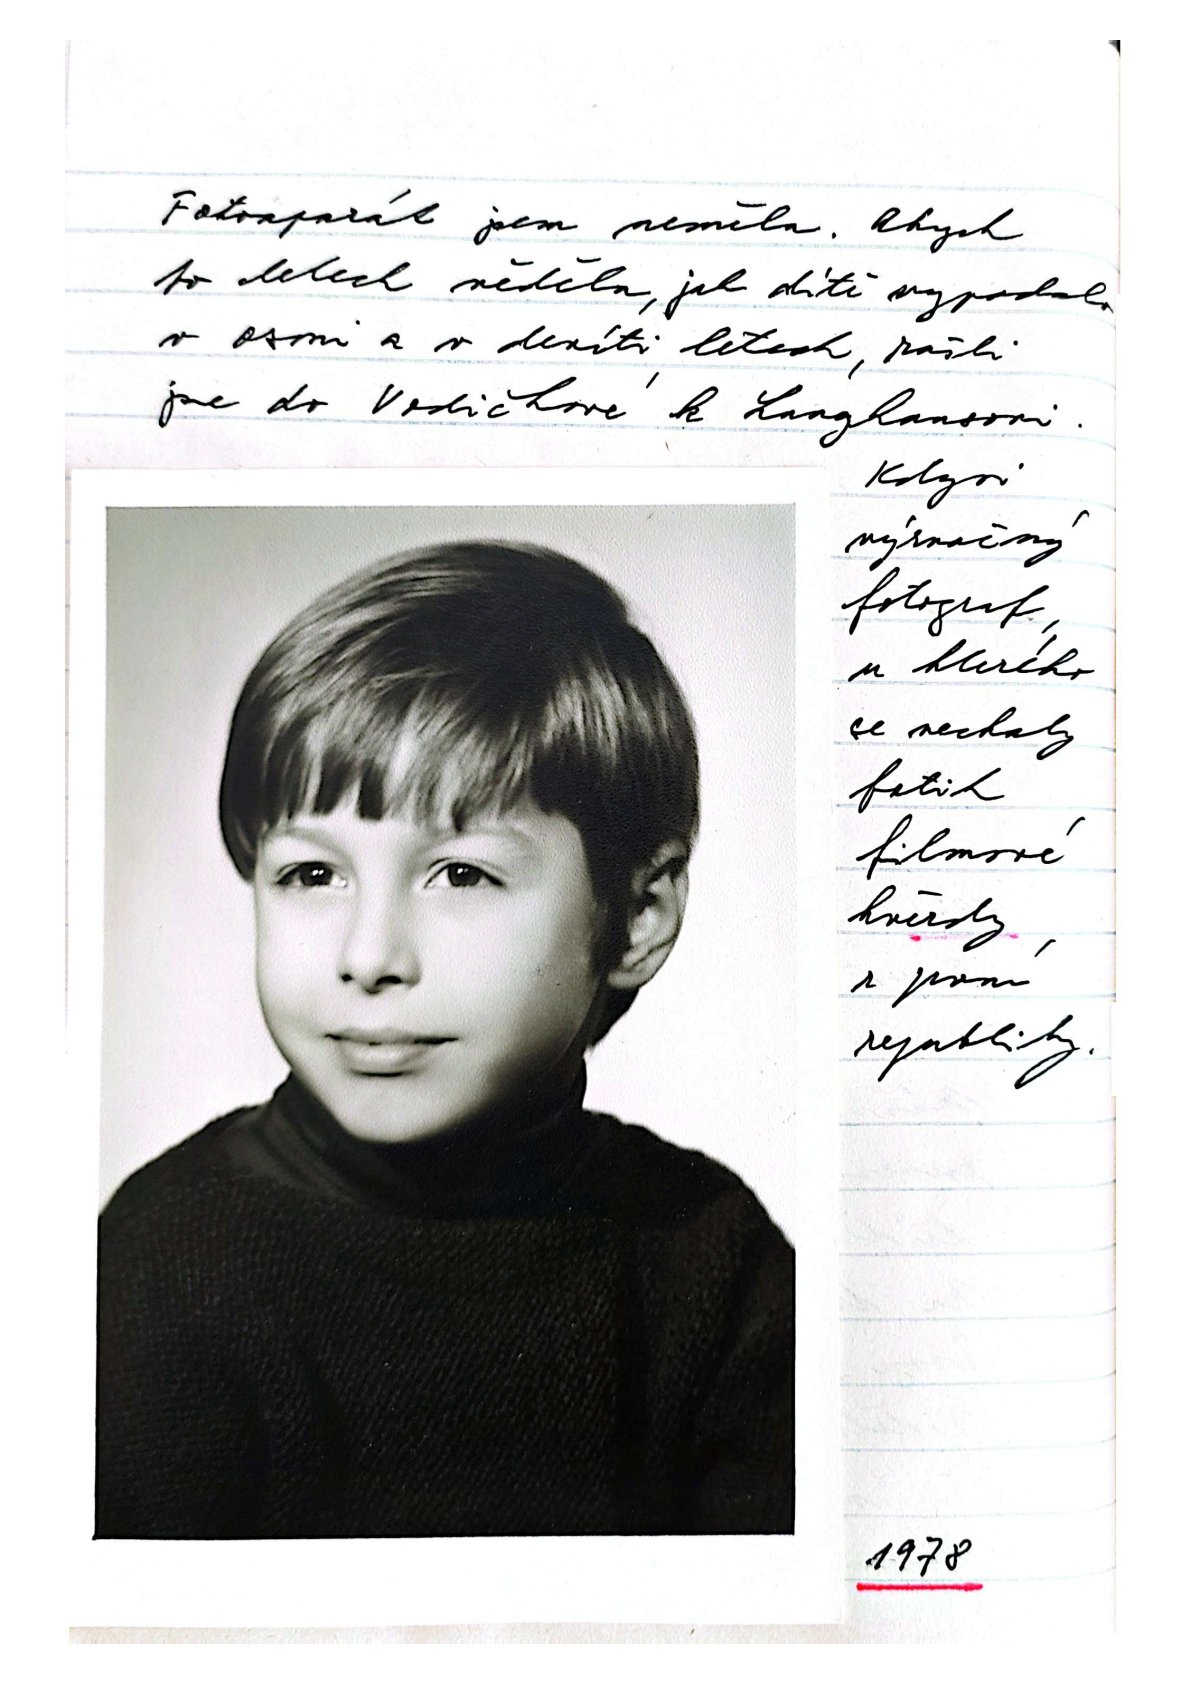 Fotoaparát jsem neměla. Abych
po letech věděla, jak dítě vypadalo
v osmi a v devíti letech, zašli
jsme do Vodičkové k Langhansovi.
Kdysi
výsračný
fotograf,
u kterého
se nechaly
fotit
filmové
hvězdy
z první
republiky.
1978